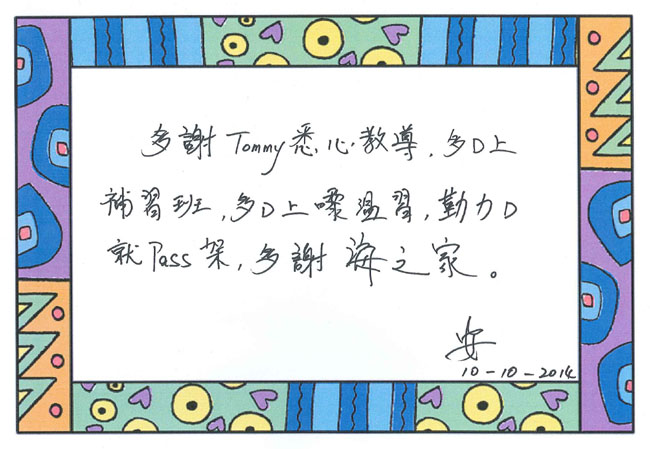 多謝 Tommy 悉心教導，多D上
補習班，多D上嚟溫習，勤力D
就Pass架，多謝 海之家。
安
10-10-2014